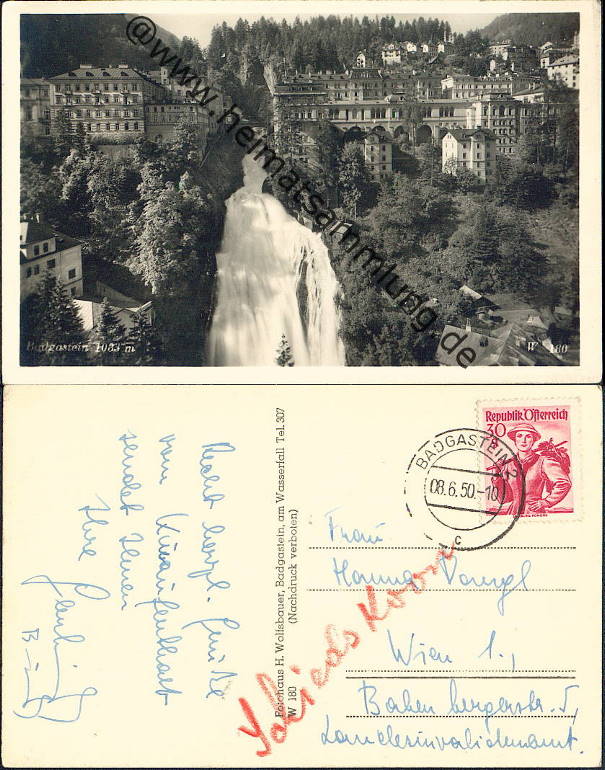 @www.heimatsammlung.de
Badgastein 1083 m
W 180
Recht herzl. Grüße
vom Kuraufenthalt
sendet Ihnen
Ihre
Fotohaus H. Wolisbauer, Badgastein, am Wasserfall Tel. 307
(Nachdruck verboten)
W 180
Republik Österreich
30
BADGASTEIN 2
08.6.50.-10
c
Frau
Hanna
Wien 1.,
Babenbergerstr. 5,
Landesinvalidenamt.